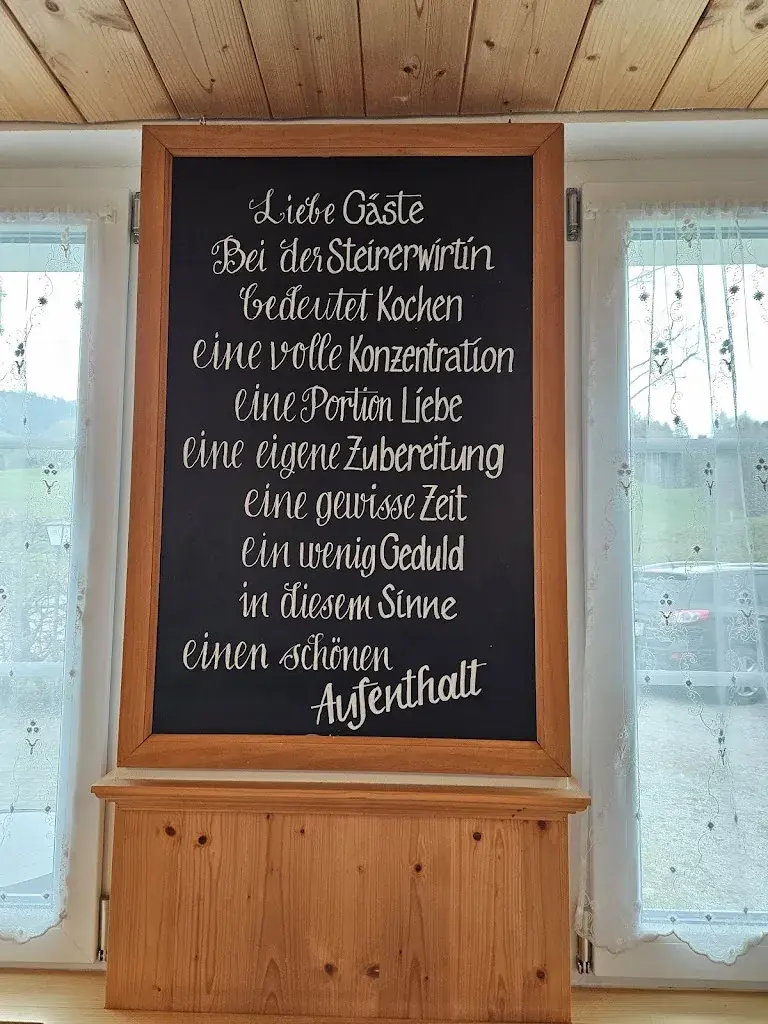 Liebe Gäste
Bei der Steirerwirtin
bedeutet Kochen
eine volle Konzentration
eine Portion Liebe
eine eigene Zubereitung
eine gewisse Zeit
ein wenig Geduld
in diesem Sinne
einen schönen
Aufenthalt